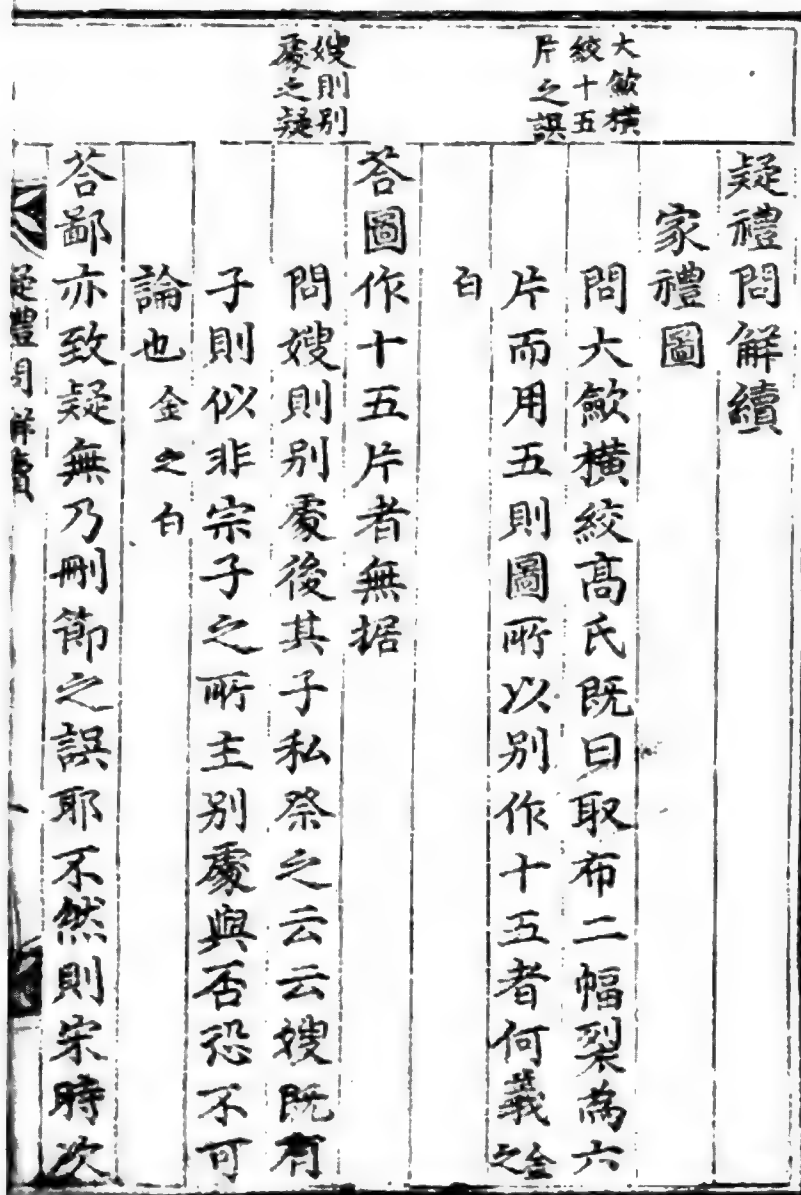 大斂橫
絞十五
片之誤
嫂則别
處之疑
疑禮問解續
家禮圖
問大斂橫絞高氏既曰取布二幅裂爲六
片而用五則圖所以别作十五者何義金之
白
答圖作十五片者無据
問嫂則别處後其子私祭之云云嫂既有
子則似非宗子之所主别處與否恐不可
論也金之白
答鄙亦致疑無乃刪節之誤耶不然則宋時次
疑禮問解續